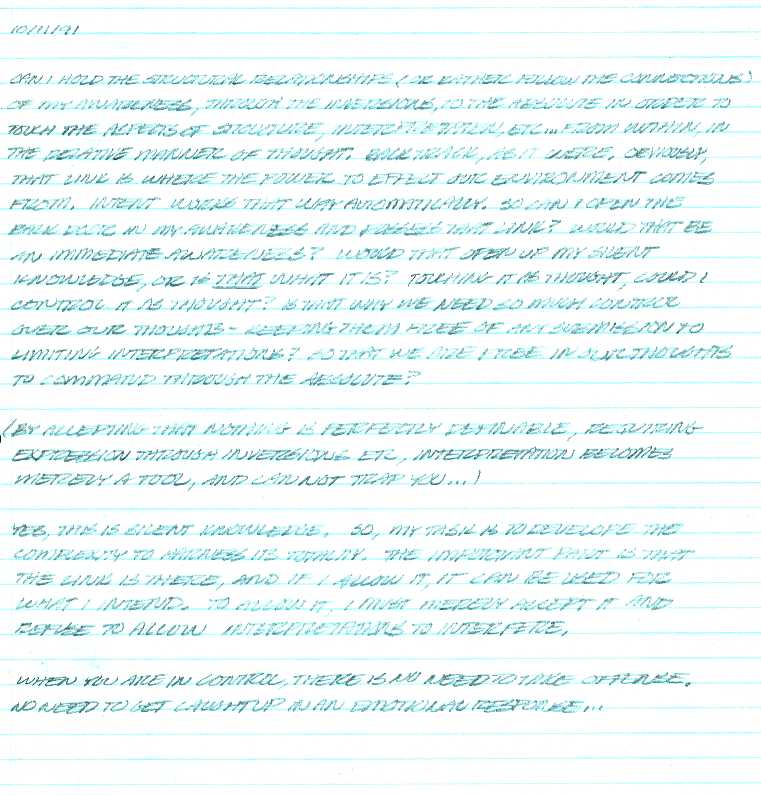 10/11/91
CAN I HOLD THE STRUCTURAL RELATIONSHIPS (OR RATHER FOLLOW THE CONNECTIONS)
OF MY AWARENESS, THROUGH THE INVERSIONS, TO THE ABSOLUTE IN ORDER TO
TOUCH THE ASPECTS OF STRUCTURE, INTERPRETATION, ETC... FROM WITHIN, IN
THE RELATIVE MANNER OF THOUGHT. BACKTRACK, AS IT WERE. OBVIOUSLY,
THAT LINK IS WHERE THE POWER TO EFFECT OUR ENVIRONMENT COMES
FROM. INTENT WORKS THAT WAY AUTOMATICALLY. SO CAN I OPEN THE
BACK DOOR IN MY AWARENESS AND POSSESS THAT LINK? WOULD THAT BE
AN IMMEDIATE AWARENESS? WOULD THAT OPEN UP MY SILENT
KNOWLEDGE, OR IS THAT WHAT IT IS? TOUCHING IT AS THOUGHT, COULD I
CONTROL IT AS THOUGHT? IS THAT WHY WE NEED SO MUCH CONTROL
OVER OUR THOUGHTS - KEEPING THEM FREE OF ANY SUBMISSION TO
LIMITING INTERPRETATIONS? SO THAT WE ARE FREE IN OUR THOUGHTS
TO COMMAND THROUGH THE ABSOLUTE?
(BY ACCEPTING THAT NOTHING IS PERFECTLY DEFINABLE, REQUIRING
EXPRESSION THROUGH INVERSIONS ETC, INTERPRETATION BECOMES
MERELY A TOOL, AND CAN NOT TRAP YOU...)
YES, THIS IS SILENT KNOWLEDGE. SO, MY TASK IS TO DEVELOPE THE
COMPLEXITY TO HARNESS ITS TOTALITY. THE IMPORTANT POINT IS THAT
THE LINK IS THERE, AND IF I ALLOW IT, IT CAN BE USED FOR
WHAT I INTEND. TO ALLOW IT, I MUST MERELY ACCEPT IT AND
REFUSE TO ALLOW INTERPRETATIONS TO INTERFERE.
WHEN YOU ARE IN CONTROL, THERE IS NO NEED TO TAKE OFFENSE.
NO NEED TO GET CAUGHT UP IN AN EMOTIONAL RESPONSE...